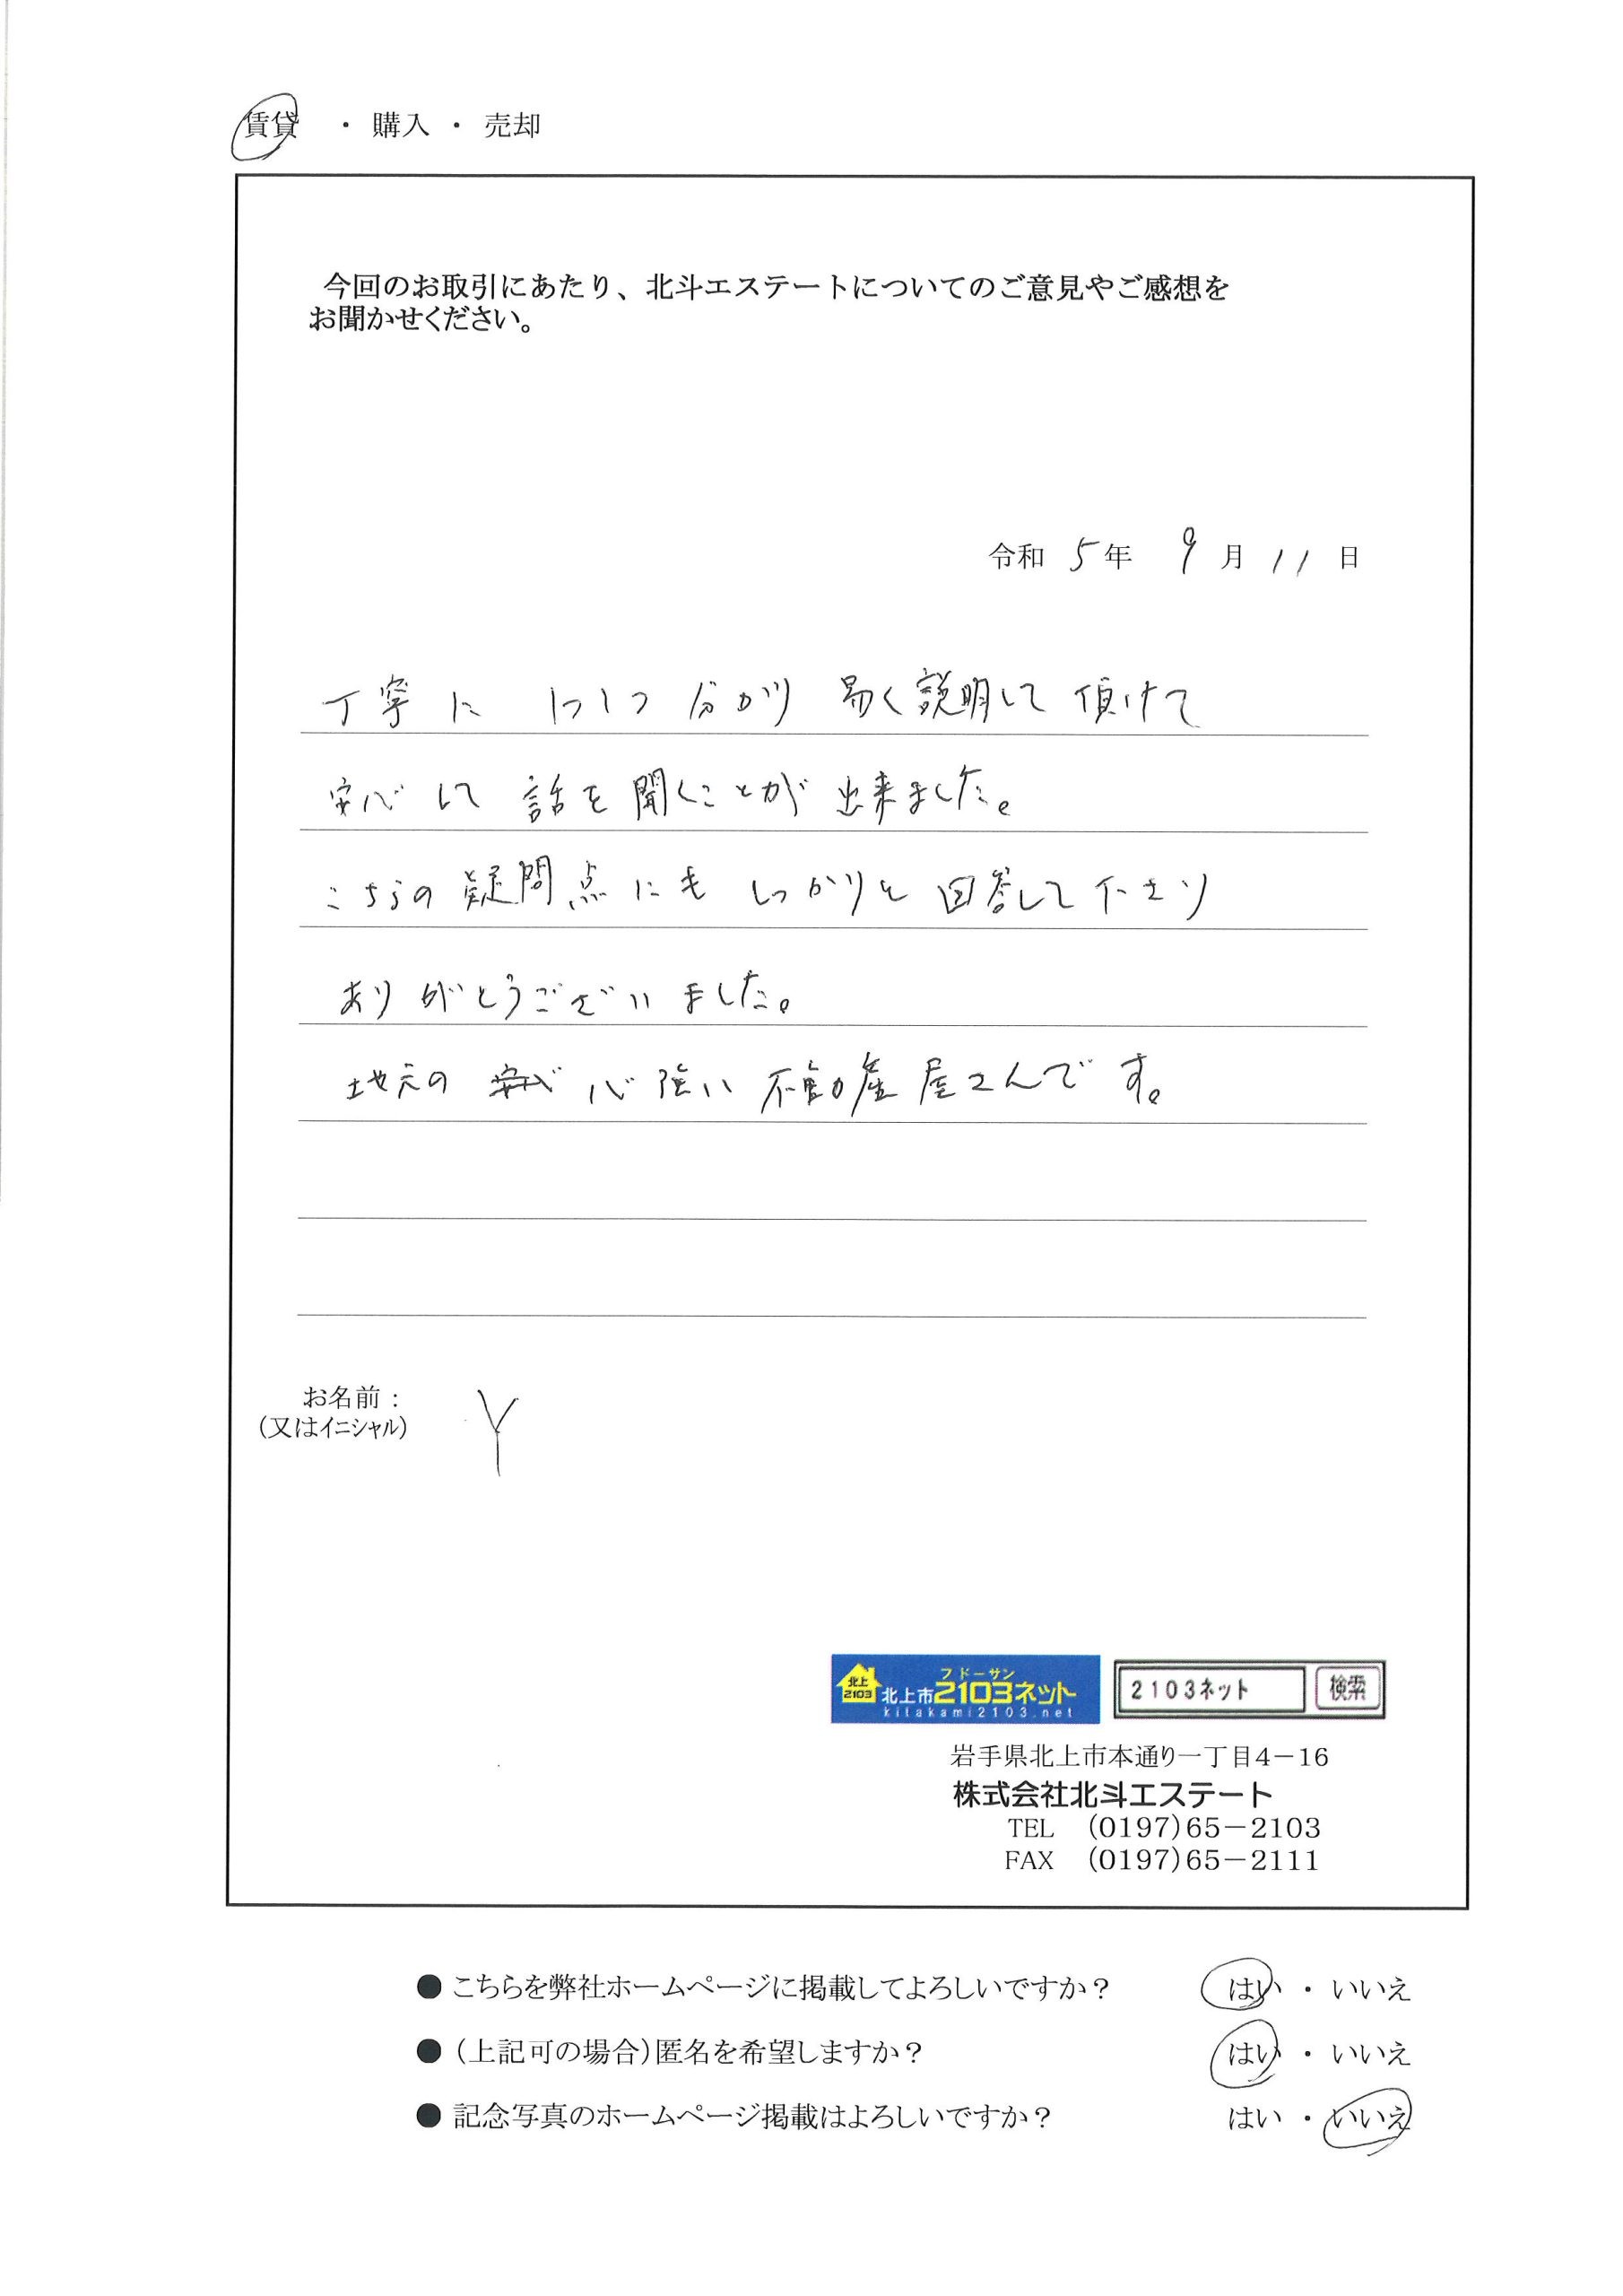 賃貸 ・ 購入 ・ 売却
今回のお取引にあたり、北斗エステートについてのご意見やご感想を
お聞かせください。
令和 5年 9月 11日
丁寧に 1つ1つ 分かり易く説明して頂けて
安心して 話を聞くことが出来ました。
こちらの疑問点にも しっかりと 回答して下さり
ありがとうございました。
地元の 心強い 不動産屋さんです。
お名前：
(又はイニシャル) Y
フドーサン
北上 2103 北上市2103ネット
kitakami2103.net
2103ネット 検索
岩手県北上市本通り一丁目4－16
株式会社北斗エステート
TEL (0197)65－2103
FAX (0197)65－2111
●こちらを弊社ホームページに掲載してよろしいですか？ はい ・ いいえ
●(上記可の場合)匿名を希望しますか？ はい ・ いいえ
●記念写真のホームページ掲載はよろしいですか？ はい ・ いいえ